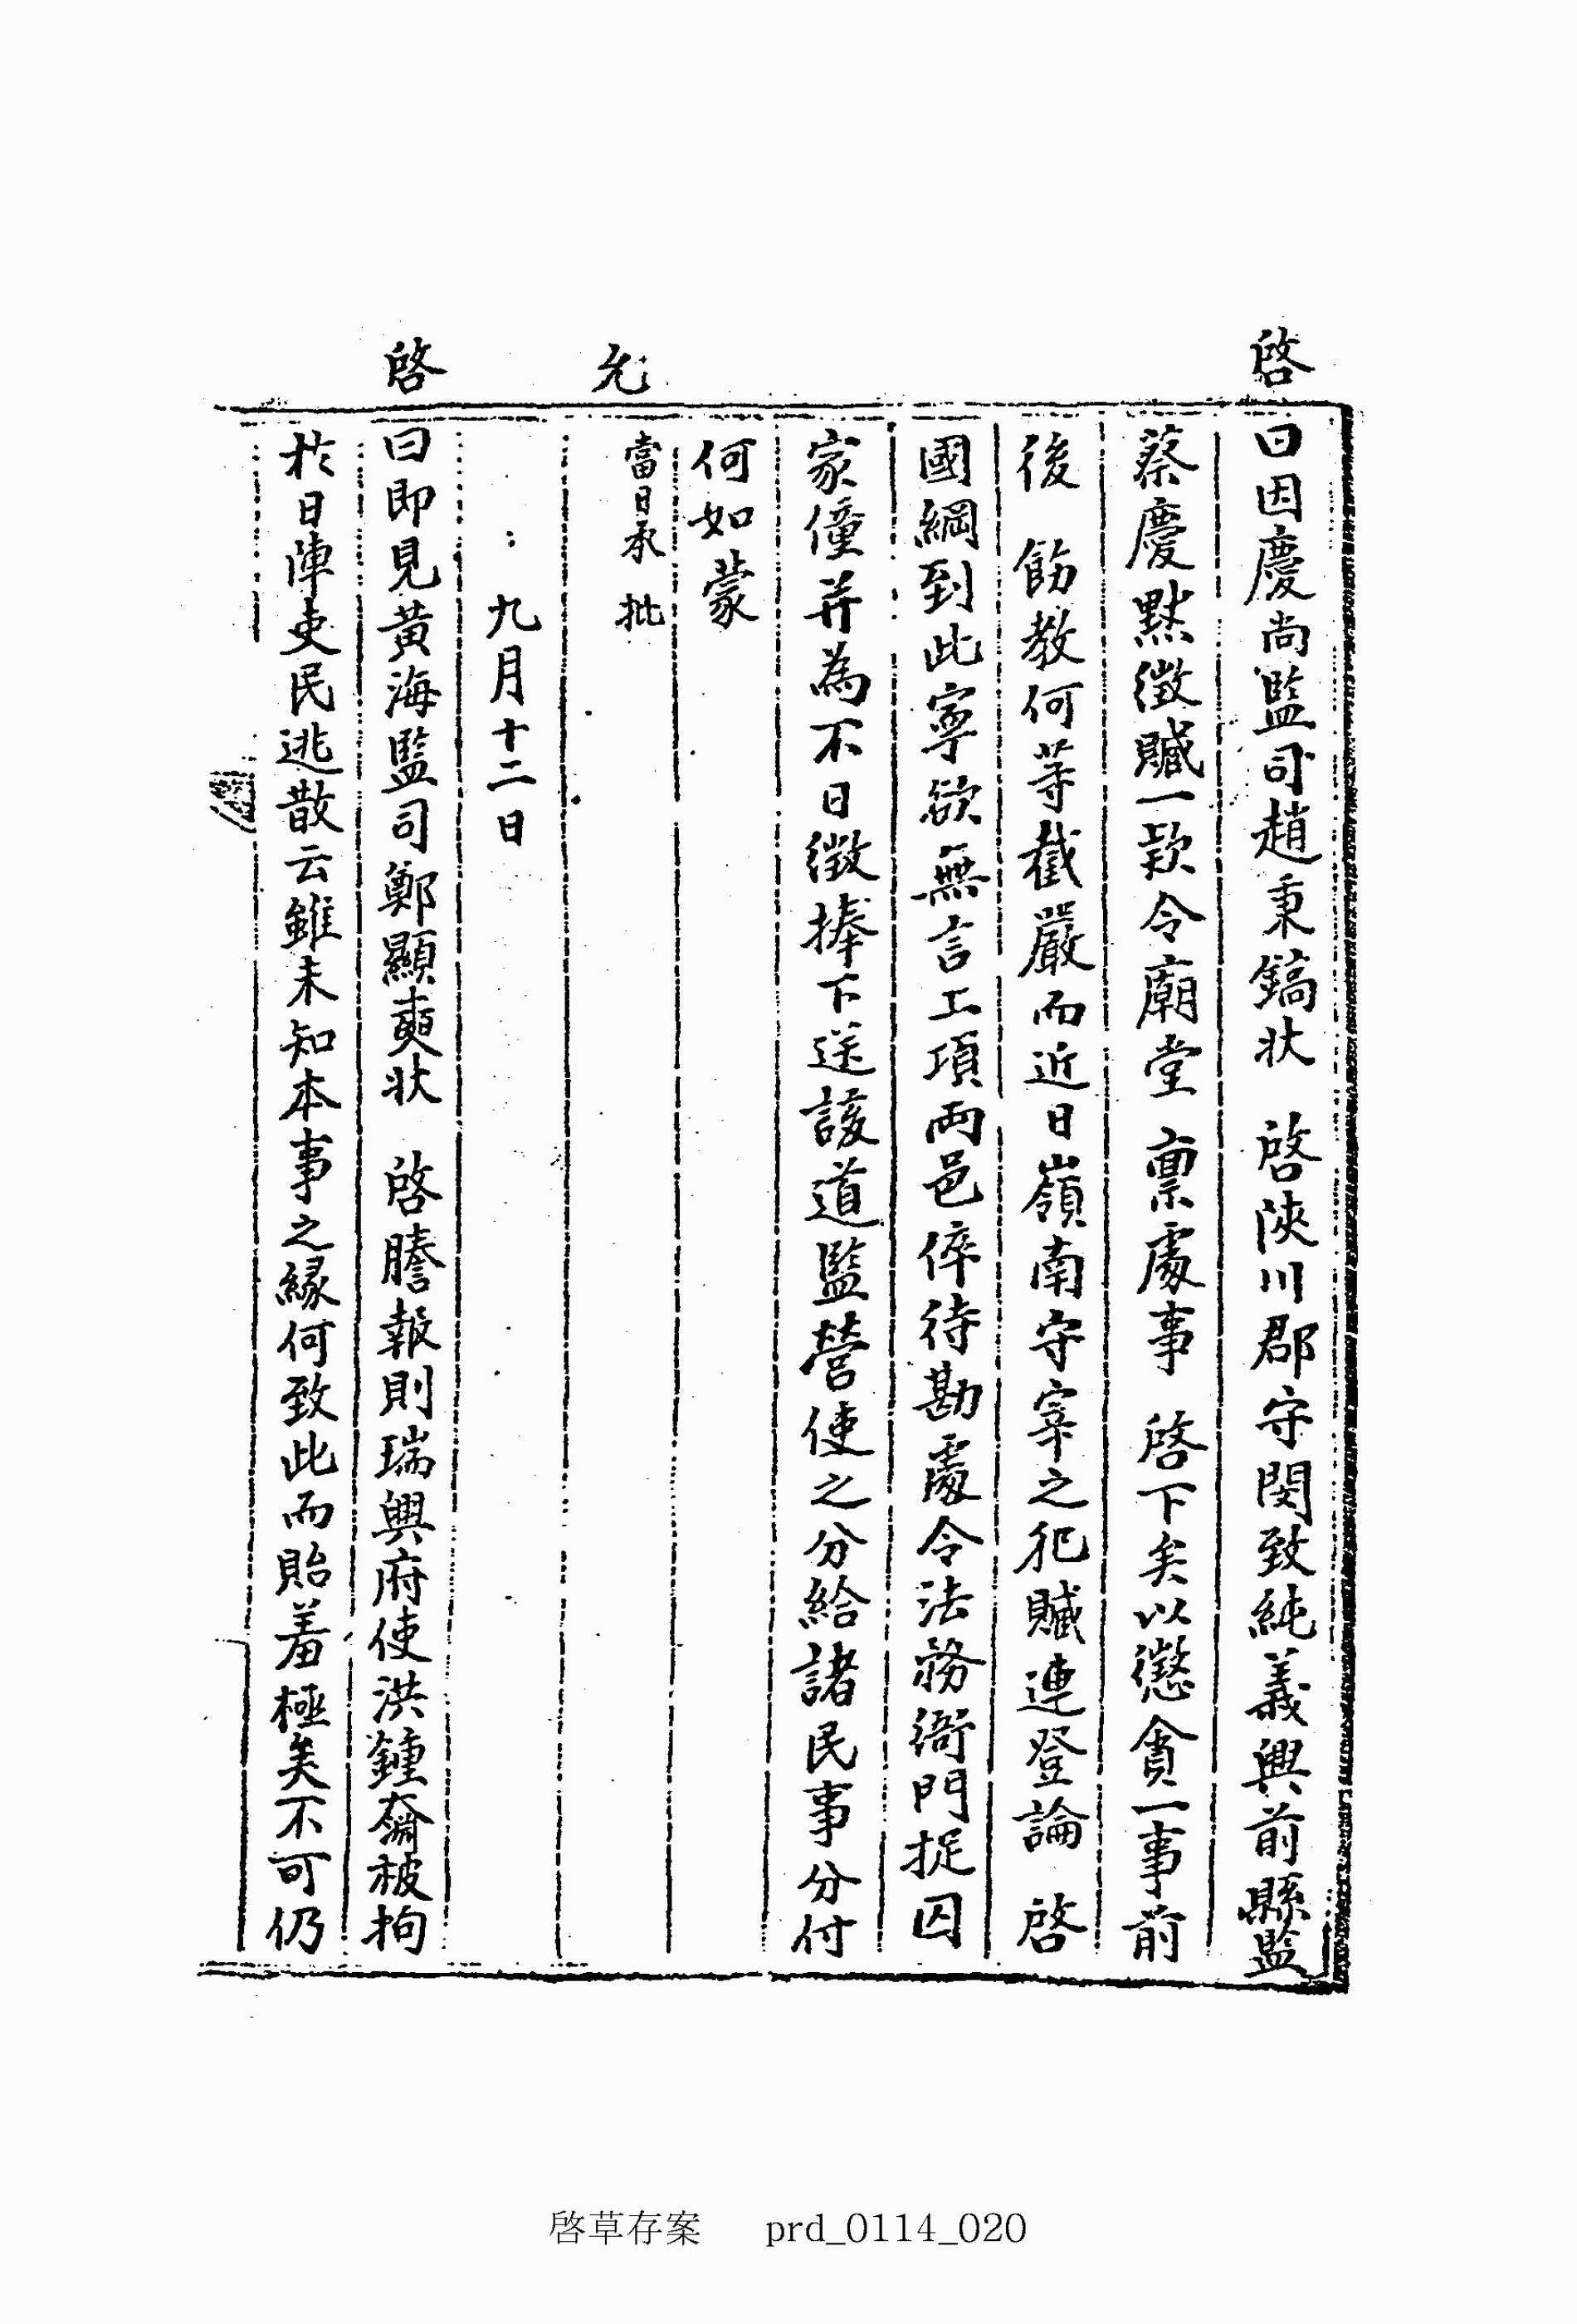 啓曰因慶尚監司趙秉鎬狀 啓陜川郡守閔致純義興前縣監
蔡慶默徵贓一款令廟堂 稟處事 啓下矣以懲貪一事前
後 飭教何等截嚴而近日嶺南守宰之犯贓連登論 啓
國綱到此寧欲無言上項兩邑倅待勘處令法務衙門捉囚
家僮並為不日徵捧下送該道監營使之分給諸民事分付
何如蒙
允
當日承 批
九月十二日
啓曰即見黃海監司鄭顯奭狀 啓謄報則瑞興府使洪鍾奫被拘
於日陣吏民逃散云雖未知本事之緣何致此而貽羞極矣不可仍
啓草存案 prd_0114_020